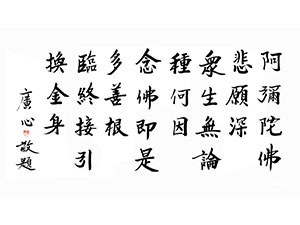 阿彌陀佛
悲願深
衆生無論
種何因
念佛即是
多善根
臨終接引
換金身
廣心敬題